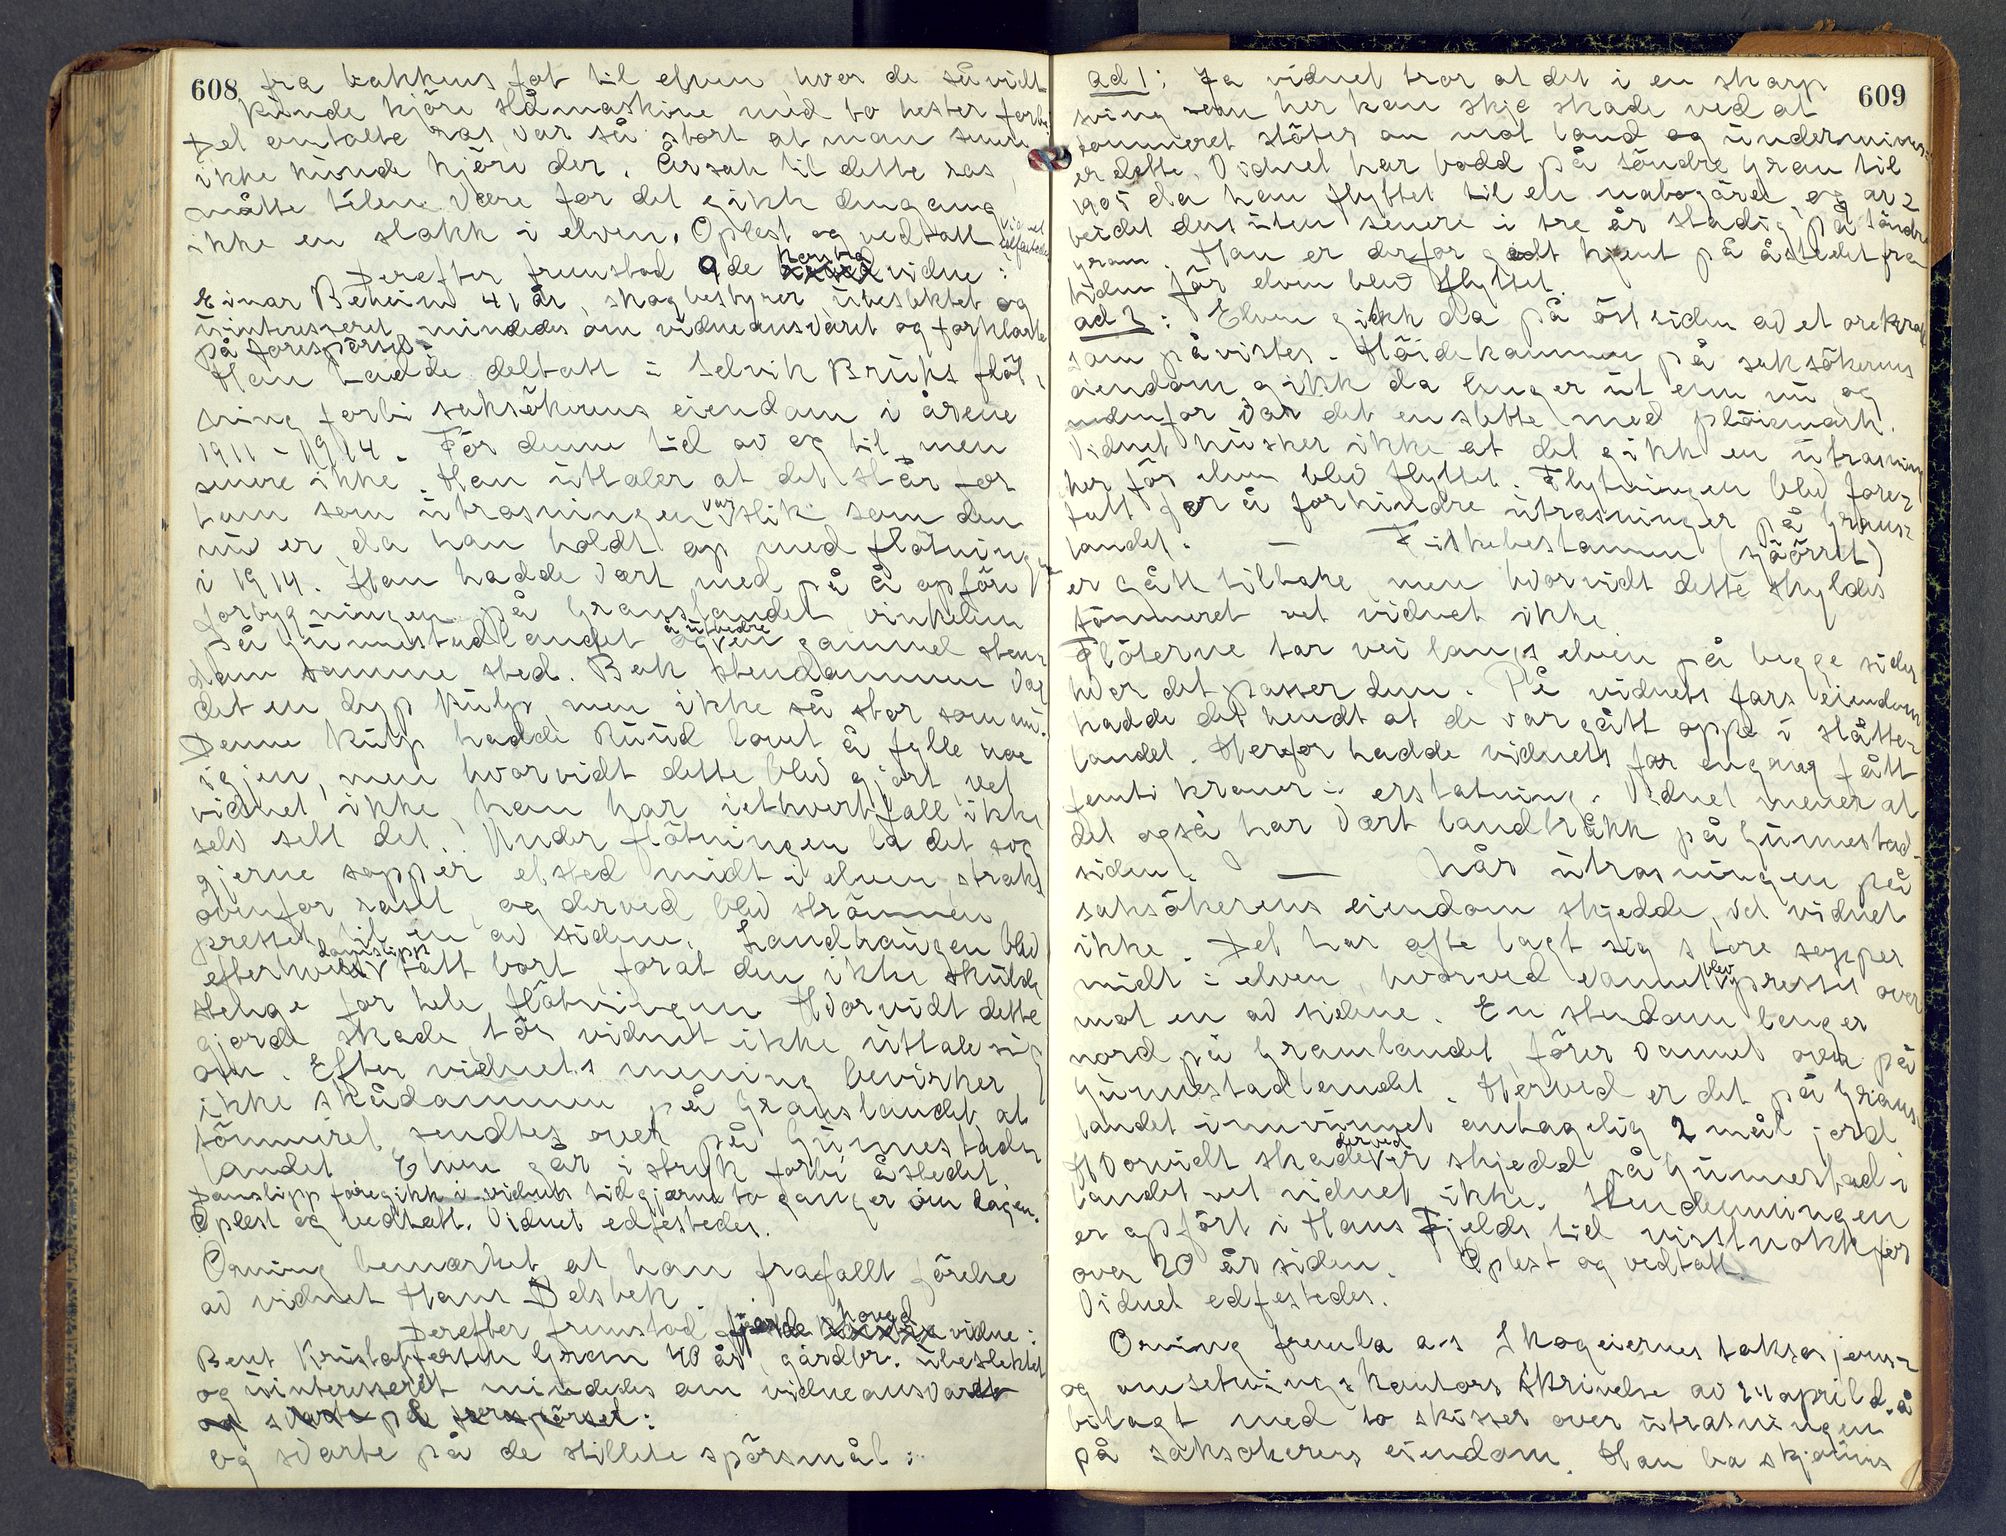 608
fra bakkens fot til elven hvor de såvidt
kunde kjöre slåmaskine med to hester forbi
Det omtalte ras var så stort at man senere
ikke kunde kjöre der. Årsak til dette ras
måtte elven være for det gikk dengang
ikke en stokk i elven. Oplest og vedtatt vidnet edfestedes
Derefter fremstod 9de vidne:
Einar Beheim 41 år, skogbestyrer, ubeslektet og
uinteressert, mindedes om vidneansvaret og forklarte
på forespörsel:
Han hadde deltatt i Selvik Bruks flöt-
ning forbi saksökerens eiendom i årene
1911 - 1914. För denne tid av og til, men
senere ikke. Han uttaler at det står for
ham som utrasningen var slik som den
nu er, da han holdt op med flötningen
i 1914. Han hadde vært med på å opföre
forbygningen på Granslandet vinkelen
på Gunnestadlandet å utbedre en gammel sten-
dam samme sted. Bak stendammen var
det en dyp kulp men ikke så stor som nu.
Denne kulp hadde Ruud lovet å fylle noe
igjen, men hvorvidt dette blev gjort vet
vidnet ikke, han har iethvertfall ikke
selv sett det. Under flötningen la det sig
gjerne sopper etsted midt i elven straks
ovenfor raset, og derved blev strömmen
presset til en av sidene. Landhaugen blev
efterhvert damslipp tatt bort forat den ikke skulde
stenge for hele flötningen. Hvorvidt dette
gjorde skade tör vidnet ikke uttale sig
om. Efter vidnets mening bevirker
ikke skådammen på Granslandet at
tömmeret sendtes over på Gunnestad-
landet. Elven går i stryk forbi åstedet.
Damslipp foregikk i vidnets tid gjerne to ganger om dagen.
Oplest og vedtatt. Vidnet edfestedes.
Orning bemerket at han frafallt förelse
av vidnet Hans Delsbek.
Derefter fremstod fjerde hoved vidne:
Bent Kristoffersen Gran 40 år, gårdbr. ubeslektet
og uinteressert mindedes om vidneansvaret
og svarte på forespörsel:
og svarte på de stillete spörsmål:
609
ad 1: Ja vidnet tror at det i en skarp
sving som her kan skje skade ved at
tömmeret stöter an mot land og underminer-
er dette. Vidnet har bodd på söndre Gran til
1905 da han flyttet til en nabogård og ar-
beidet dessuten senere i tre år stadig på söndre
Gran. Han er derfor godt kjent på åstedet fra
tiden för elven blev flyttet.
ad 2: Elven gikk da på östsiden av et orekratt
som påvistes. Höidekammen på saksökerens
eiendom gikk da lenger ut enn nu og
nedenfor var det en slette med plöiemark.
Vidnet husker ikke at det gikk en utrasning
her för elven blev flyttet. Flytningen blev fore-
tatt for å forhindre utrasninger på Grans-
landet. — Fiskebestanden (sjöörret)
er gått tilbake men hvorvidt dette skyldes
tömmeret vet vidnet ikke
Flöterne tar vei langs elven på begge sider
hvor det passer dem. På vidnets fars eiendom
hadde det hendt at de var gått oppe i slåtte-
landet. Herfor hadde vidnets far engang fått
femti kroner i erstatning. Vidnet mener at
det også har vært landtråkk på Gunnestad-
siden. — Når utrasningen på
saksökerens eiendom skjedde, vet vidnet
ikke. Det har ofte lagt sig store sopper
midt i elven, hvorved vannet blev presset over
mot en av sidene. En stendam lenger
nord på Granlandet förer vannet over på
Gunnestadlandet. Herved er det på Grans-
landet innvunnet antagelig 2 mål jord
Hvorvidt skade derved er skjedd på Gunnestad-
landet vet vidnet ikke. Stendemningen
er opfört i Hans Fjelds tid visstnokk for
over 20 år siden. Oplest og vedtatt.
Vidnet edfestedes.
Orning fremla a-s Skogeiernes taksasjons-
og omsetningskontors skrivelse av 24 april d. å
bilagt med to skisser over utrasningen
på saksökerens eiendom. Han ba skjönns